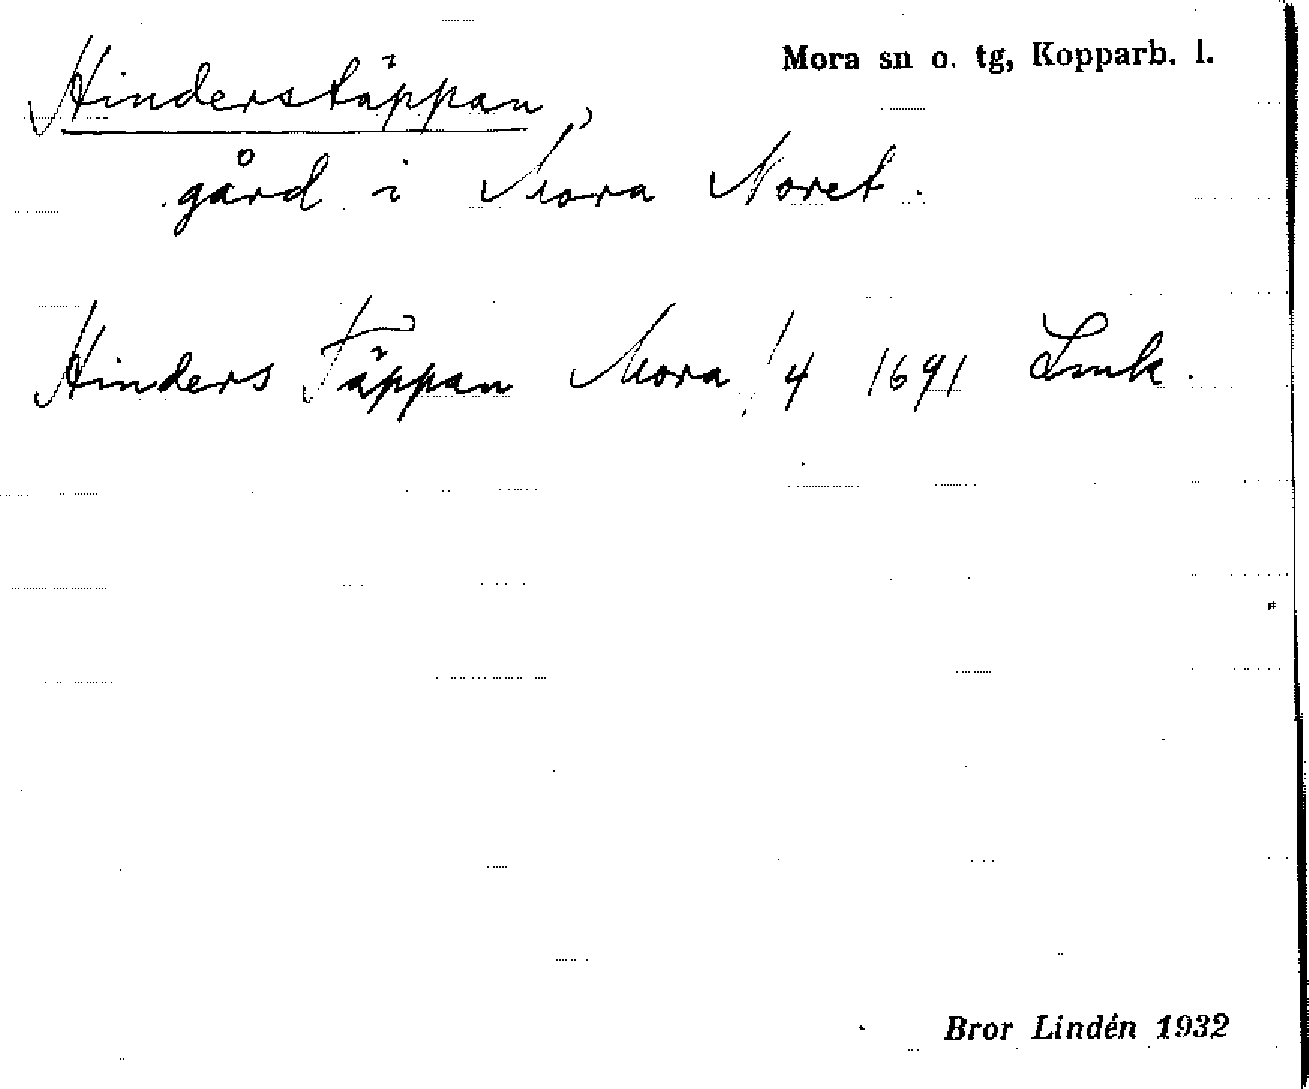 Mora sn o. tg, Kopparb. l.
Hinderstäppan,
gård i Mora Noret.
Hinders Täppan Mora /4 1691 Lmk.
Bror Lindén 1932